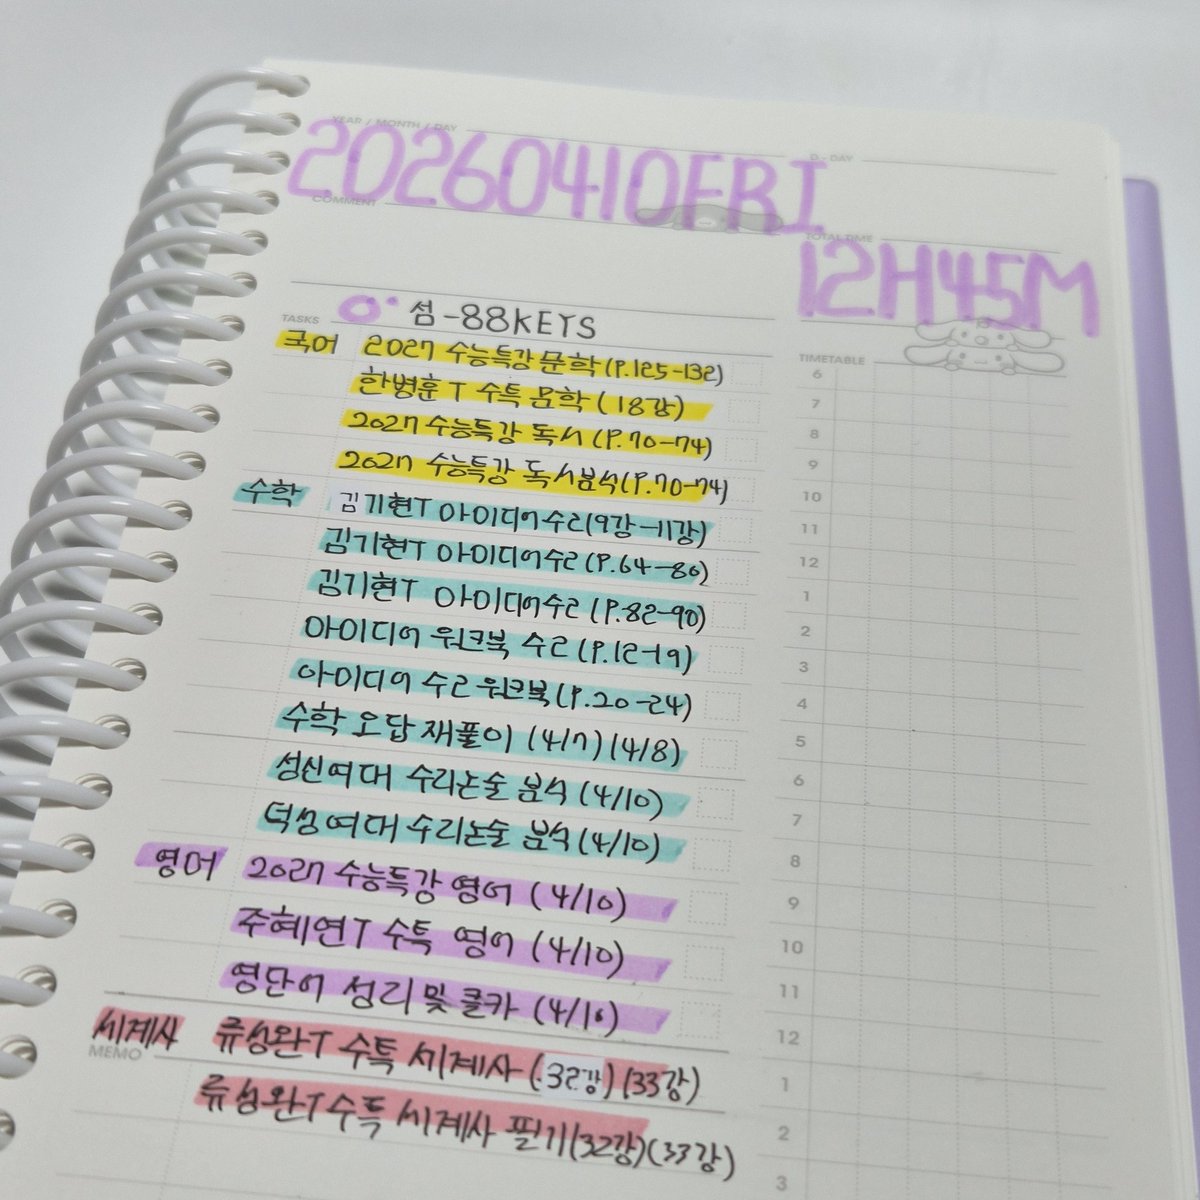 YEAR / MONTH / DAY
D-DAY
20260410FRI
COMMENT
TOTAL TIME
12H45M
섬-88KEYS
TASKS
국어 2027 수능특강 문학(P.125-132)
한병훈T 수특 문학(18강)
2027 수능특강 독서(P.70-74)
2027 수능특강 독서분석(P.70-74)
수학 김기현T 아이디어수2(9강-11강)
김기현T 아이디어수2(P.64-80)
김기현T 아이디어수2(P.82-90)
아이디어 워크북 수2(P.12-19)
아이디어 수2 워크북(P.20-24)
수학 오답 재풀이 (4/7)(4/8)
성신여대 수리논술 분석(4/10)
덕성여대 수리논술 분석(4/10)
영어 2027 수능특강 영어 (4/10)
주혜연T 수특 영어 (4/10)
영단어 정리 및 클카 (4/10)
세계사 류성완T 수특 세계사(32강)(33강)
MEMO
류성완T 수특 세계사 필기(32강)(33강)
TIMETABLE
6
7
8
9
10
11
12
1
2
3
4
5
6
7
8
9
10
11
12
1
2
3